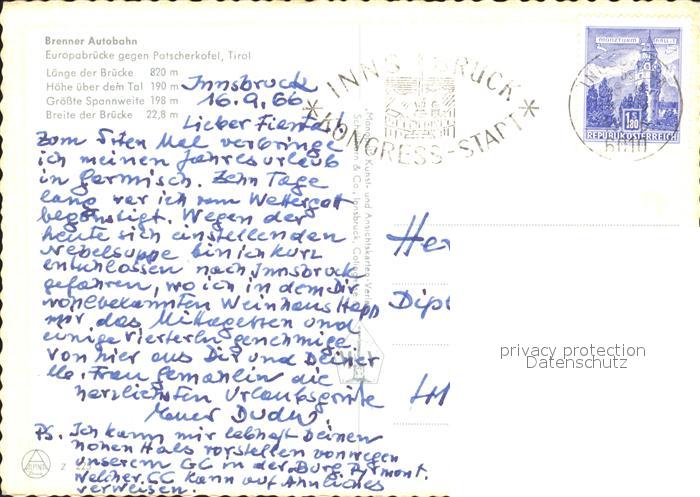 Brenner Autobahn
Europabrücke gegen Patscherkofel, Tirol
Länge der Brücke 820 m
Höhe über dem Tal 190 m
Größte Spannweite 198 m
Breite der Brücke 22,8 m
INNSBRUCK
KONGRESS-STADT
MÜNZTURM HALL
1.80
REPUBLIK ÖSTERREICH
6010
Innsbruck
16.9.66
Lieber
zum 5ten Mal verbringe
ich meinen Jahresurlaub
in Garmisch. Zehn Tage
lang war ich vom Wettergott
begünstigt. Wegen der
heute sich einstellenden
Nebelsuppe bin ich kurz
entschlossen nach Innsbruck
gefahren, wo ich in dem Dir
wohlbekannten Weinhaus Happ
mir das Mittagessen und
einige Vierterln genehmige
von hier aus Dir und Deiner
Frau Gemahlin die
herzlichsten Urlaubsgrüße
PS. Ich kann mir lebhaft Deinen
hohen Hals vorstellen von wegen
unserem CC in der Burg Pyrmont.
Welcher CC kann auf Ähnliches
verweisen.
Her
Dipl
privacy protection
Datenschutz
ALPINA
Z